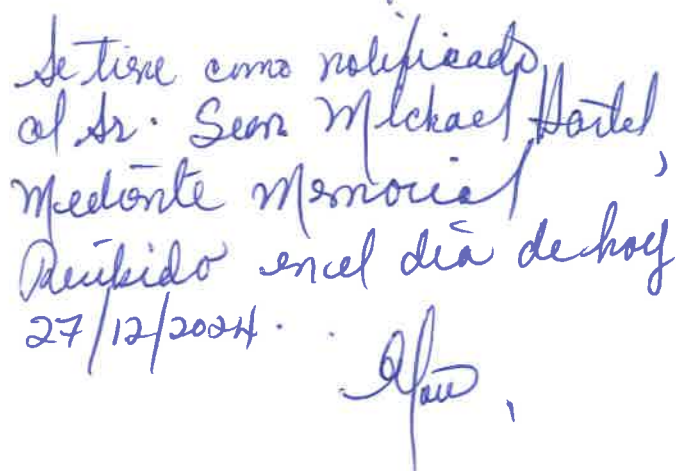 Se tiene como notificado
al Sr. Sean Michael Hartel,
Mediante Memorial
Recibido en el día de hoy
27/12/2024.